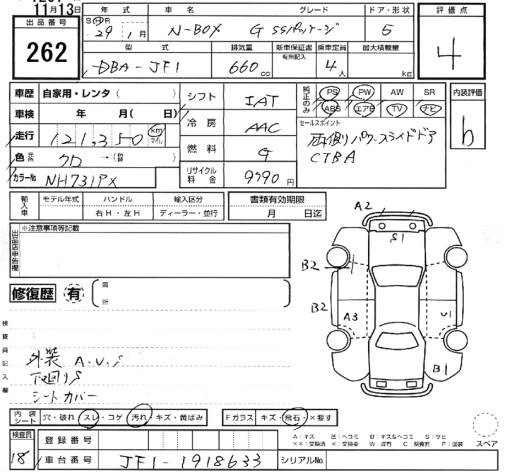 11月13日
出品番号
262
年式 車名 グレード ドア・形状
S H R 29年 1月 N-BOX G SSパッケージ 5
型式 排気量 新車保証書 有無記入 乗車定員 最大積載量
DBA-JF1 660cc 4人 kg
評価点
4
車歴 自家用・レンタ( )
車検 年 月( 日)
走行 121,350 km マイル
色 クロ →( 替)
カラーNo NH731PX
シフト IAT
冷房 AAC
燃料 G
リサイクル料金 9990円
純正のみ PS PW AW SR
ABS エアB TV ナビ
セールスポイント
両側パワースライドドア
CTBA
内装評価
b
輸入車 モデル年式 ハンドル 輸入区分
右H・左H ディーラー・並行
書類有効期限
月 日迄
出品店申告欄
※注意事項等記載
修復歴 有 箇所
検査員記入欄
外装 A.U.S
下回りS
シートカバー
A2
S1
B2
B2
A3
U1
B1
内装シート 穴・破れ スレ・コゲ 汚れ・キズ・黄ばみ
Fガラス キズ・飛石・×要す
スペア
検査員
18
登録番号
車台番号 JF1-1918633 シリアルNo